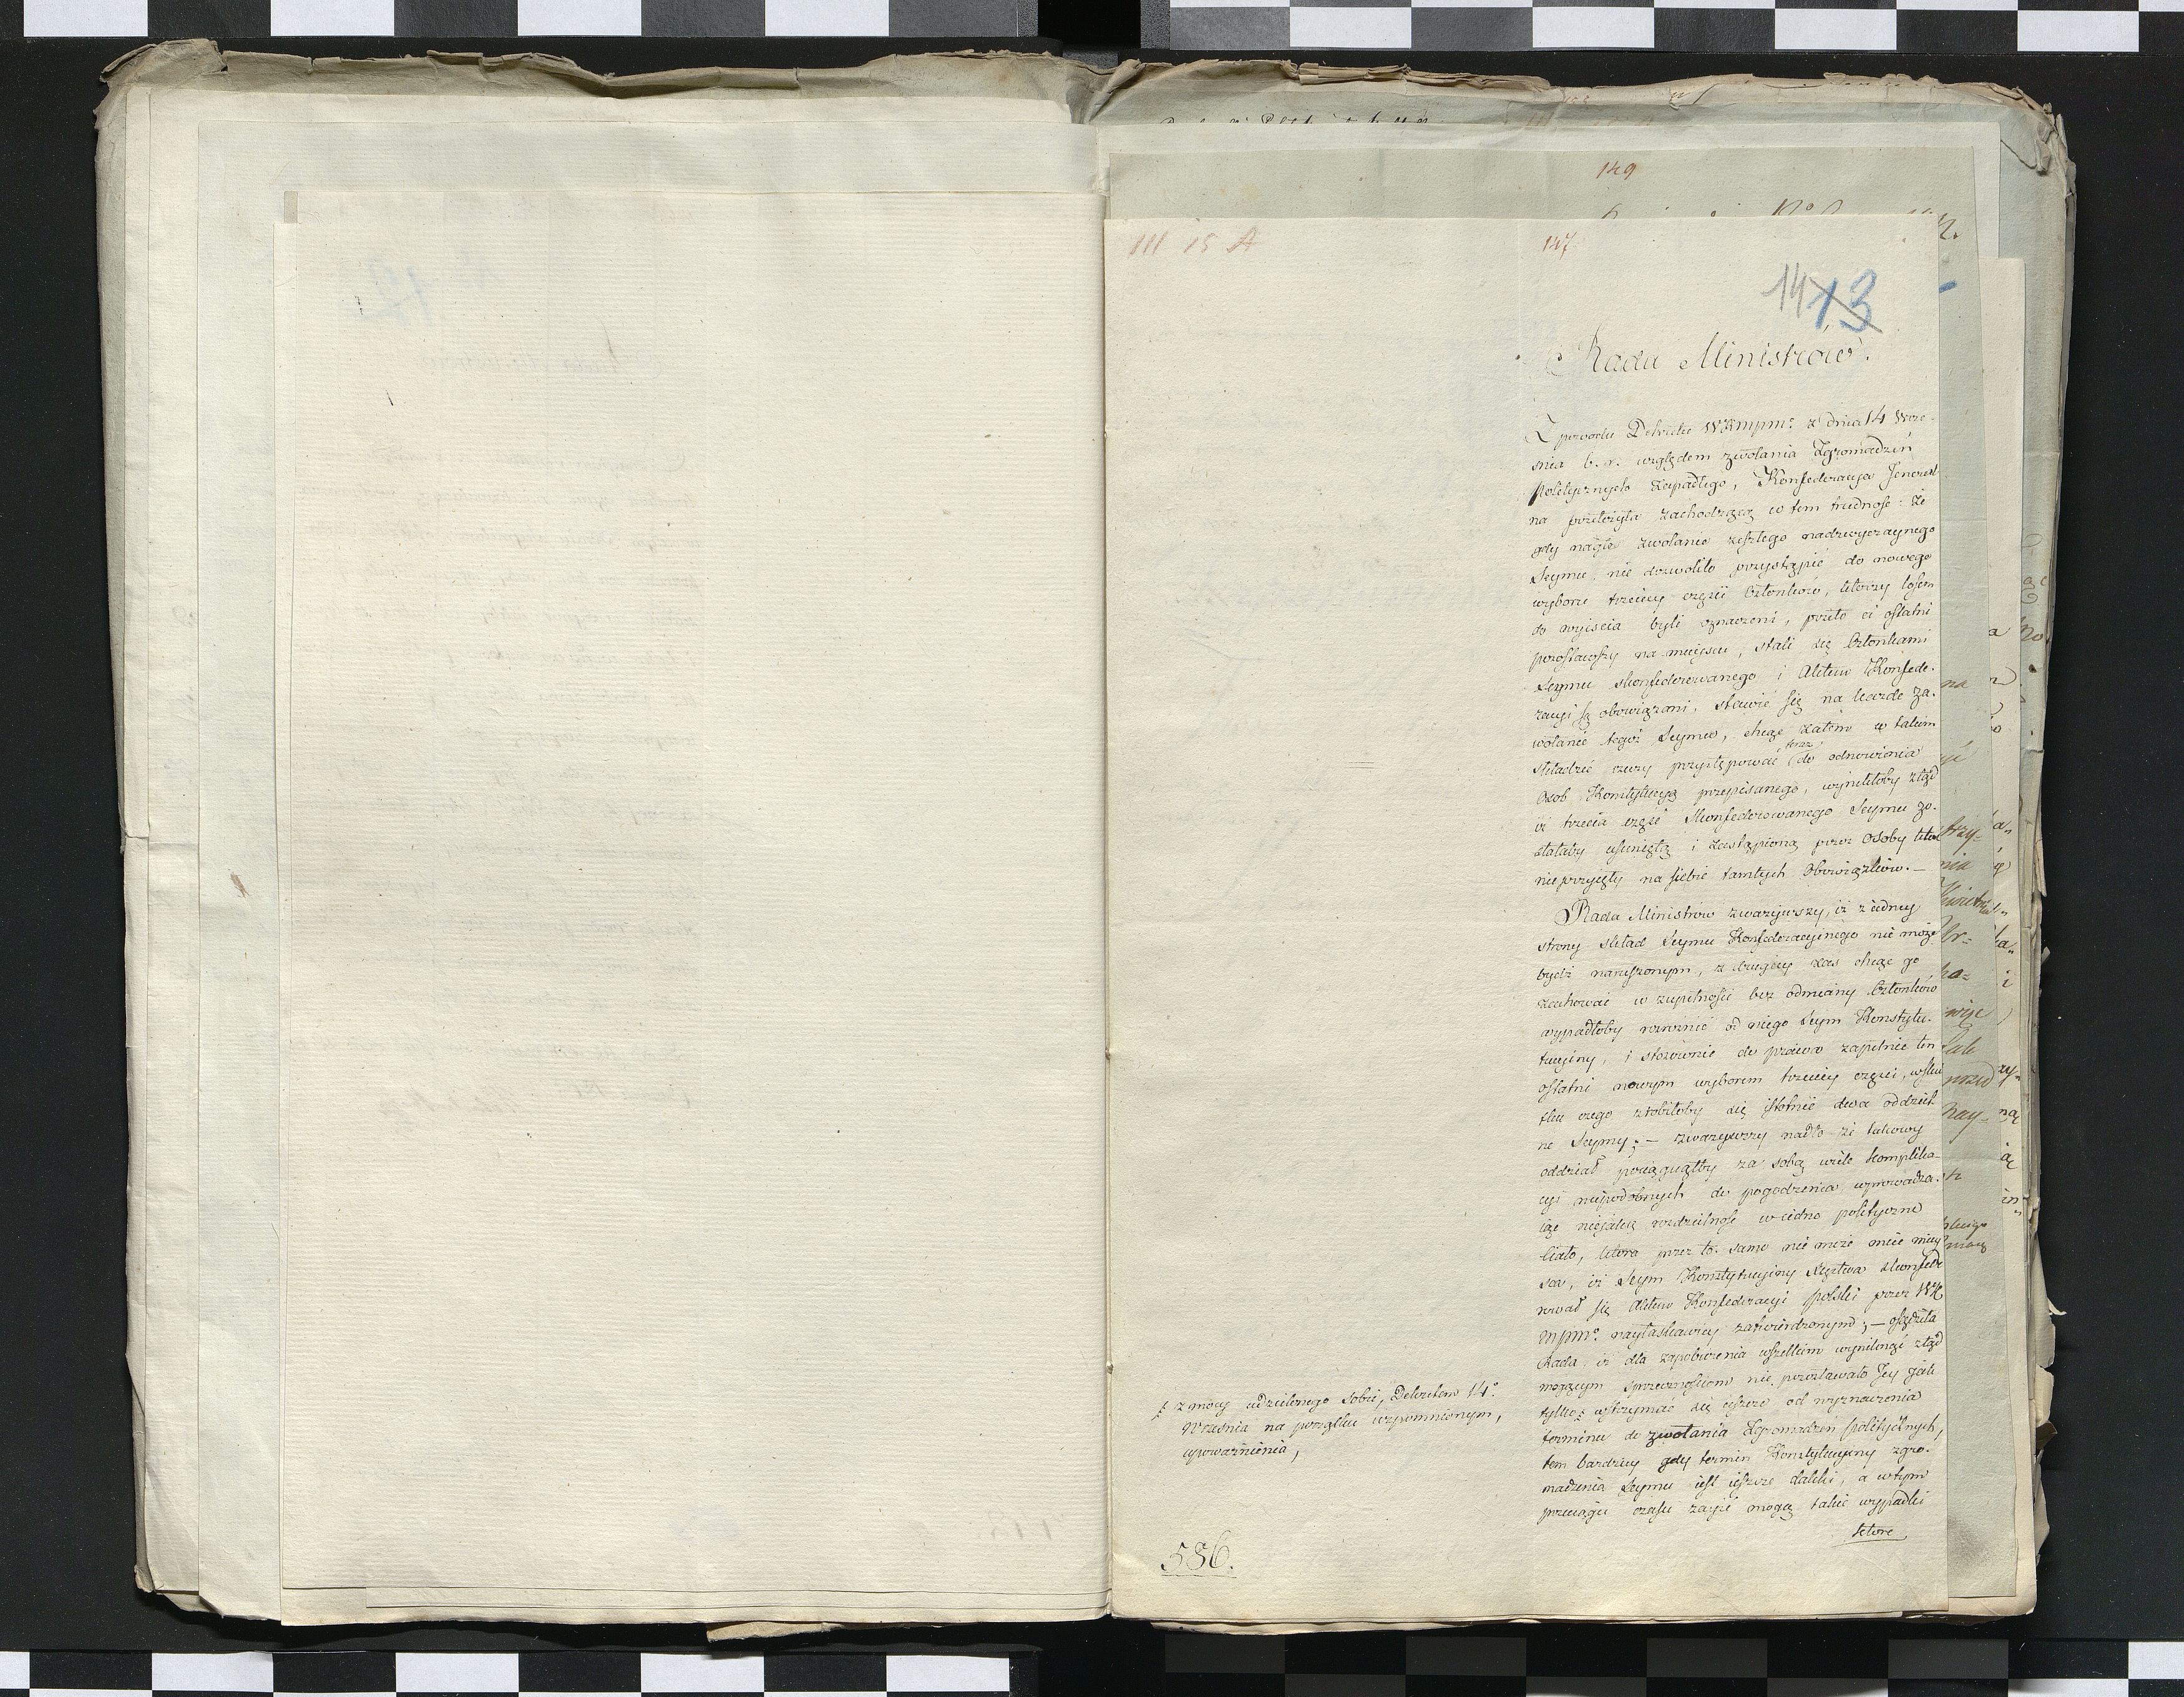 149
III 15 A
147
14 13
Rada Ministrów.
Z powodu Dekretu WKMpm: z dnia 14 Wrze-
snia b. r. względem zwołania Zgromadzeń
Politycznych zapadłego, Konfederacya Jeneral
na przełożyła zachodzącą w tem trudność: że
gdy nagłe zwołanie zeszłego nadzwyczaynego
Seymu, nie dozwoliło przystąpić do nowego
wyboru trzeciey części Członków, którzy losem
do wyiscia byli oznaczeni, przeto ci ostatni
pozostawszy na mieyscu, stali się Członkami
Seymu skonfederowanego i Aktem Konfede-
racyi są obowiązani, stawić się na każde za-
wołanie tegoż Seymu, chcąc zatem w takim
teraz
składzie rzeczy przystępować do odnowienia
Osob Konstytucyą przepisanego, wynikłoby ztąd
iż trzecia część Skonfederowanego Seymu zo-
stałaby usuniętą i zastąpioną przez Osoby które
nie przyięły na siebie tamtych Obowiązków. —
Rada Ministrow zważywszy, iż z iedney
strony skład Seymu Konfederacyinego nie może
bydź naruszonym, z drugiey zaś chcąc go
zachować w zupełności bez odmiany Członków
wypadłoby rozróżnić od niego Seym Konstytu-
tucyiny, i stosownie do prawa zapełnić ten
ostatni nowym wyborem trzeciey części, wsku
tku czego zrobiłoby się istotnie dwa oddziel-
ne Seymy; — zważywszy nadto że takowy
oddział pociągnąłby za sobą wiele komplika-
cyi niepodobnych do pogodzenia wprowadza-
iąc nieiakąś rozdzielność w iedno polityczne
Ciało, która przez to samo nie może mieć miey
sca, iż Seym Konstytucyiny Xięstwa skonfede
rował się Aktem Konfederacyi Polski przez WK
Mpm: nayłaskawiey zatwierdzonym; — osądziła
Rada, iż dla zapobieżenia wszelkim wyniknąć ztąd
mogącym sprzecznościom nie pozostawało Jey iak
tylko ⁑ wstrzymać się ieszcze od wyznaczenia
terminu do zwołania Zgromadzeń Politycznych,
tem bardziey gdy termin Konstytucyiny zgro-
madzenia Seymu iest ieszcze daleki, a w tym
przeciągu czasu zayść mogą takie wypadki
które
⁑ z mocy udzielonego sobie, Dekretem 14º
Września na początku wspomnionym,
upoważnienia,
586.